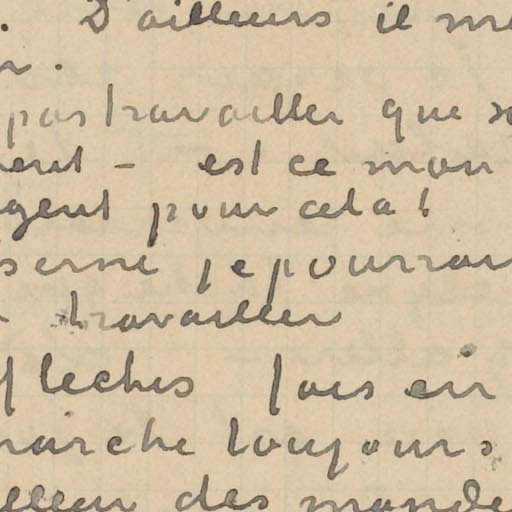 . D'ailleurs il me
r.
pas travailler que s
ent - est ce mon
gent pour cela!
serne je pourrai
travailler
fleches
marche toujours
eilleur des monde